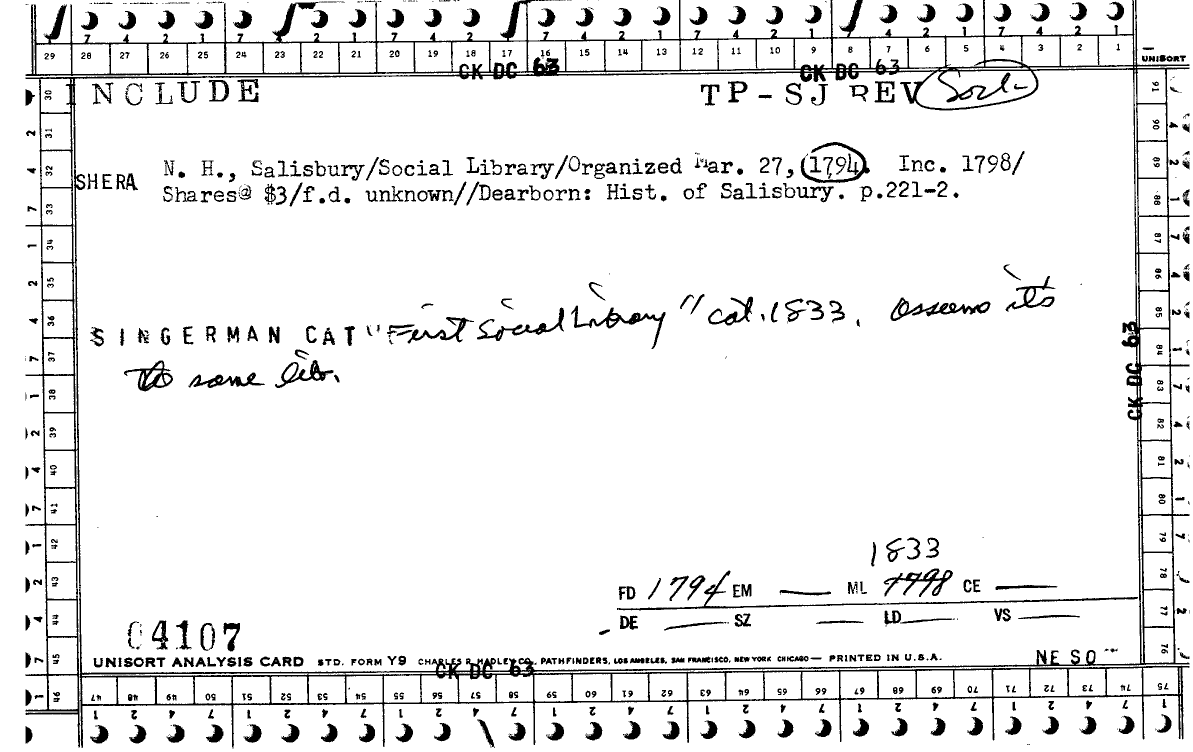 7 4 2 1 7 4 2 1 7 4 2 1 7 4 2 1 7 4 2 1 7 4 2 1 7 4 2 1
29 28 27 26 25 24 23 22 21 20 19 18 17 16 15 14 13 12 11 10 9 8 7 6 5 4 3 2 1
CK DC 63 CK DC 63 UNISORT
INCLUDE TP-SJ REV
SHERA N. H., Salisbury/Social Library/Organized Mar. 27, 1794. Inc. 1798/
Shares@ $3/f.d. unknown//Dearborn: Hist. of Salisbury. p.221-2.
SINGERMAN CAT "First Social Library" cat. 1833. Assume it's
the same lib.
CK DC 63
1833
FD 1794 EM — ML 1798 CE —
DE — SZ — LD — VS —
04107
UNISORT ANALYSIS CARD STD. FORM Y9 CHARLES R. HADLEY CO., PATHFINDERS, LOS ANGELES, SAN FRANCISCO, NEW YORK CHICAGO — PRINTED IN U.S.A. NE SO
CK DC 63
30 31 32 33 34 35 36 37 38 39 40 41 42 43 44 45 46
91 90 89 88 87 86 85 84 83 82 81 80 79 78 77 76
47 48 49 50 51 52 53 54 55 56 57 58 59 60 61 62 63 64 65 66 67 68 69 70 71 72 73 74 75
1 2 4 7 1 2 4 7 1 2 4 7 1 2 4 7 1 2 4 7 1 2 4 7 1 2 4 7 1